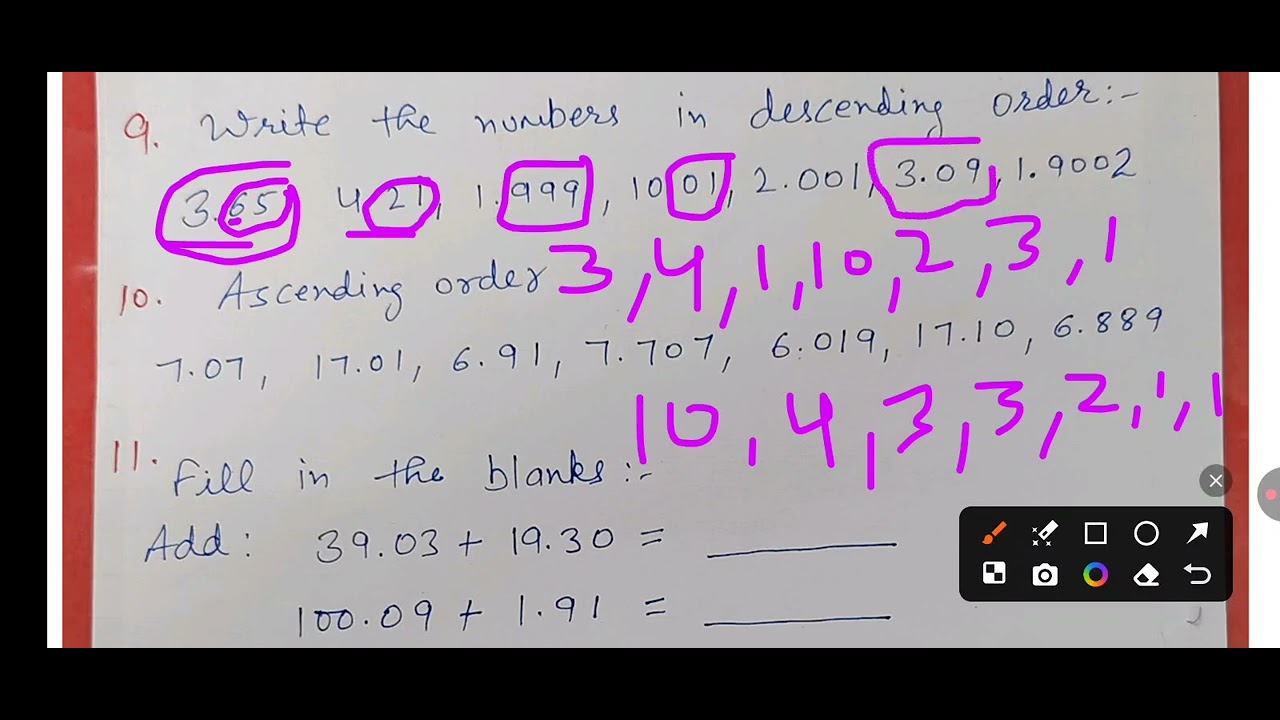 9. Write the numbers in descending order:-
3.65 4.21, 1.999, 10.01, 2.001, 3.09, 1.9002
3, 4, 1, 10, 2, 3, 1
10. Ascending order
7.07, 17.01, 6.91, 7.707, 6.019, 17.10, 6.889
10, 4, 3, 3, 2, 1, 1
11. Fill in the blanks:-
Add: 39.03 + 19.30 = ______
100.09 + 1.91 = ______